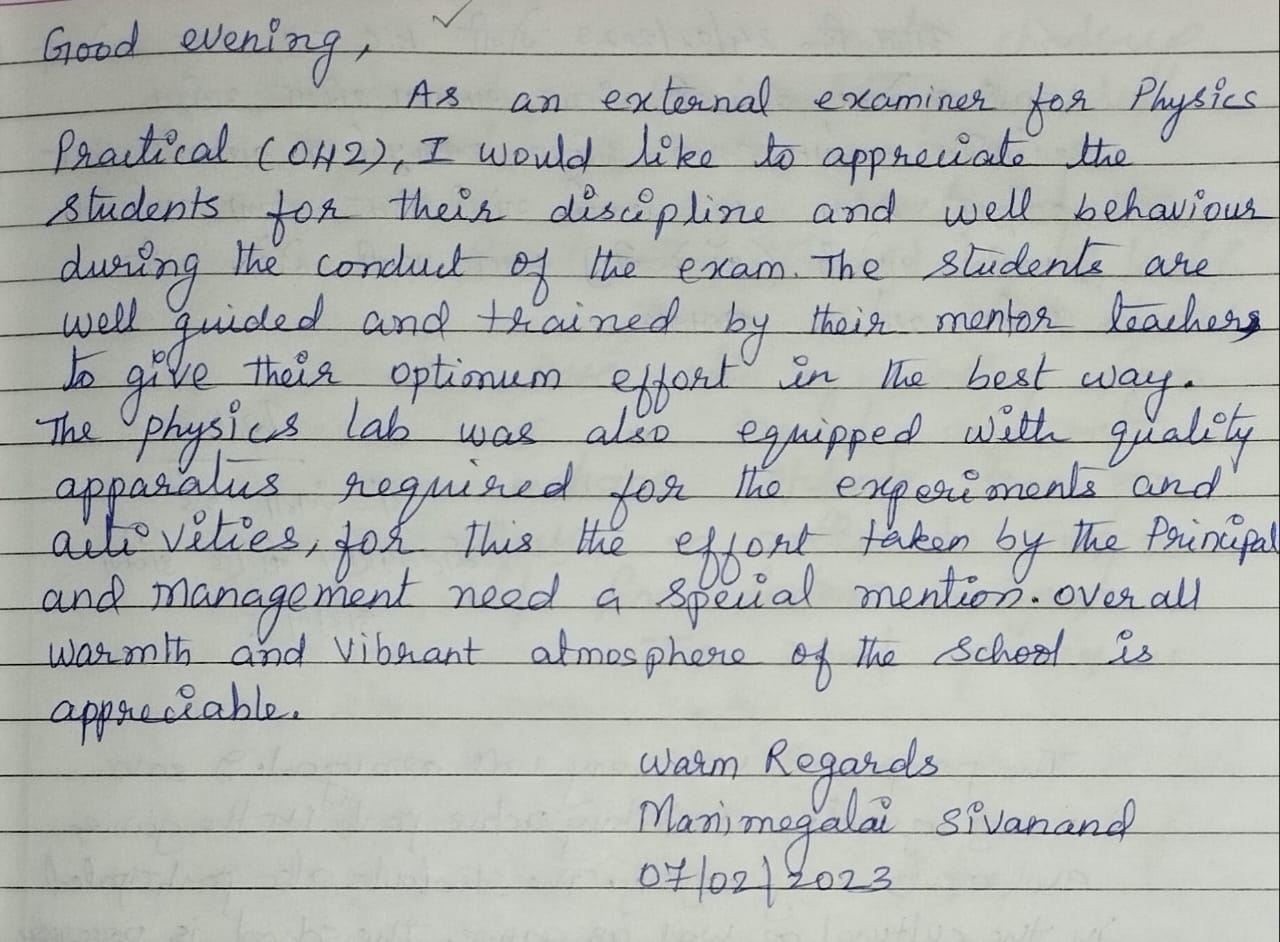 Good evening,
As an external examiner for Physics
Practical (042), I would like to appreciate the
students for their discipline and well behaviour
during the conduct of the exam. The students are
well guided and trained by their mentor teachers
to give their optimum effort in the best way.
The physics lab was also equipped with quality
apparatus required for the experiments and
activities, for this the effort taken by the Principal
and management need a special mention. Over all
warmth and vibrant atmosphere of the school is
appreciable.
Warm Regards
Manimegalai Sivanand
07/02/2023